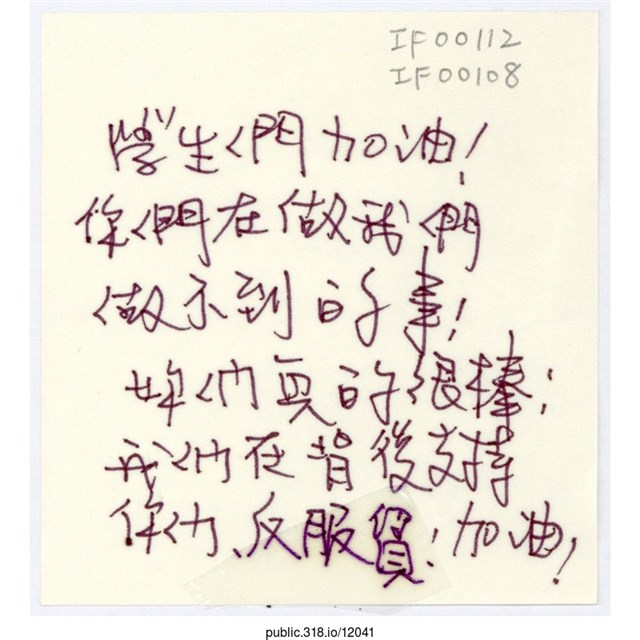 IF00112
IF00108
學生們加油!
你們在做我們
做不到的事!
妳們真的很棒!
我們在背後支持
你們、反服貿!加油!
public.318.io/12041